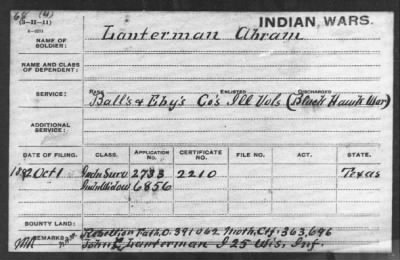 68 (4)
(3-11-11)
INDIAN WARS.
NAME OF SOLDIER: Lanterman Abram
NAME AND CLASS OF DEPENDENT:
RANK ENLISTED DISCHARGED
SERVICE: Ball's & Eby's Co's Ill Vols (Black Hawk War)
ADDITIONAL SERVICE:
DATE OF FILING. CLASS. APPLICATION NO. CERTIFICATE NO. FILE NO. ACT. STATE.
1892 Oct 1 Ind Surv 2733 2210 Texas
Ind Widow 6856
BOUNTY LAND:
REMARKS: Rebellion Fath. O. 391062 Moth. Ctf. 363,696
John E Lanterman I 25 Wis, Inf.